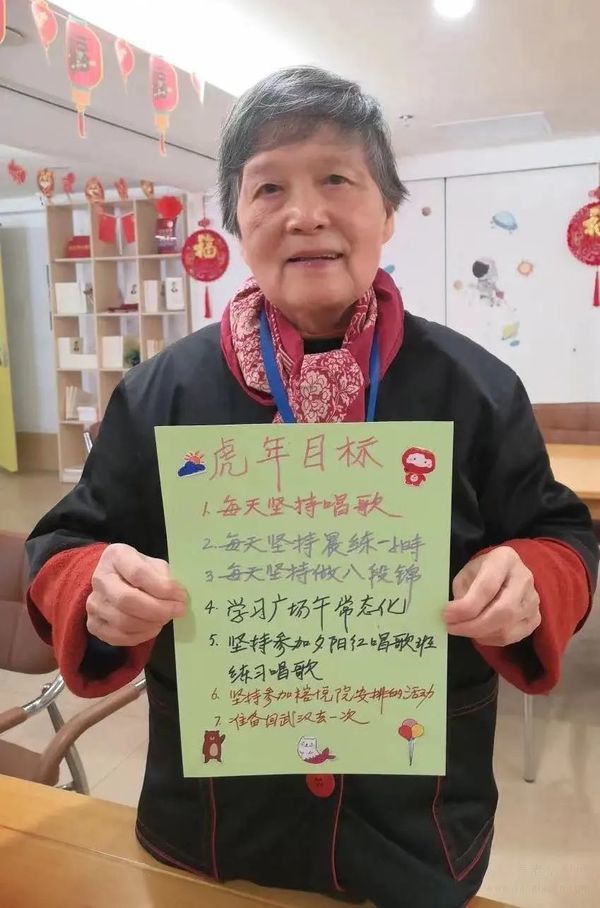 虎年目标
1. 每天坚持唱歌
2. 每天坚持晨练一小时
3 每天坚持做八段锦
4. 学习广场午常态化
5. 坚持参加夕阳红唱歌班
练习唱歌
6. 坚持参加禧悦院安排的活动
7. 准备回武汉去一次
福
福